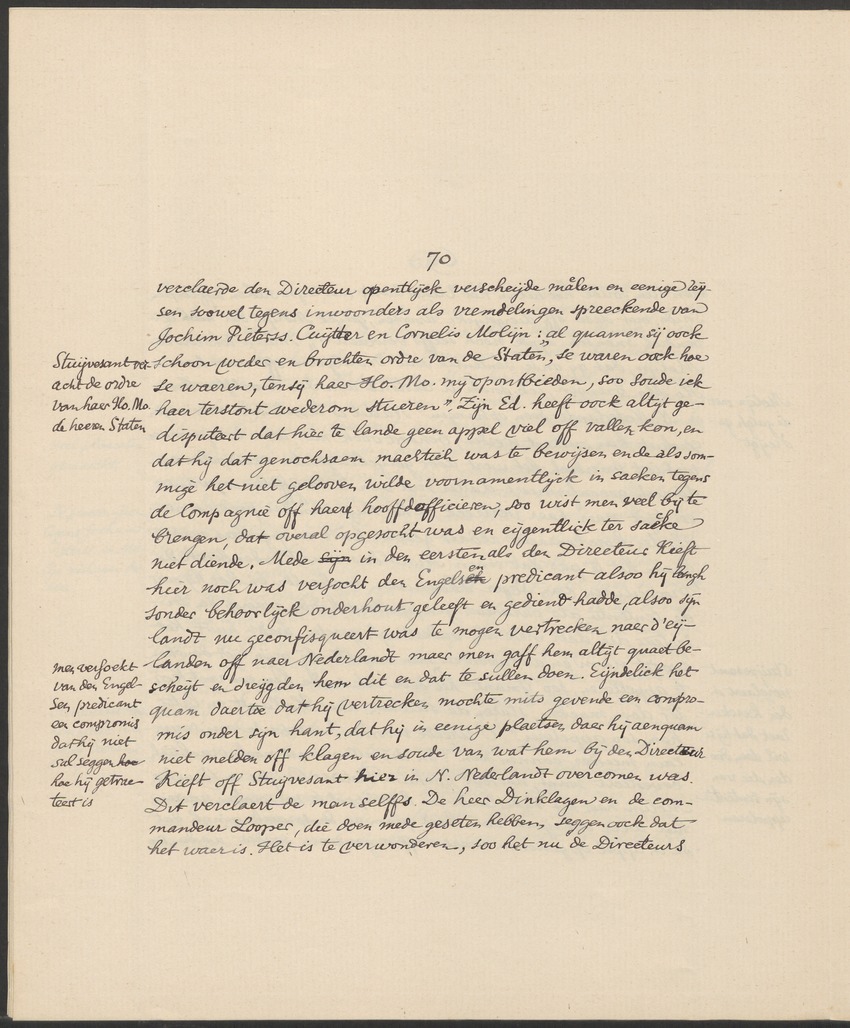 70
verclaerde den Directeur opentlijck verscheijde målen en eenige reij-
sen soowel tegens inwoonders als vremdelingen spreeckende van
Jochim Pieterss. Cuijtter en Cornelis Molijn: „al quamen sij oock
schoon weder en brochten ordre van de Staten, se waren oock hoe
se waeren, tensij haer Ho. Mo. mij opontbieden, soo soude ick
haer terstont wederom stueren”. Zijn Ed. heeft oock altijt ge-
disputeert dat hier te lande geen appel viel off vallen kon, en
dat hij dat genochsaem machtich was te bewijsen ende als som-
mige het niet gelooven wilde voornamentlijck in saeken tegens
de Compagnie off haer hooffdofficieren, soo wist men veel bij te
brengen, dat overal opgesocht was en eijgentlick ter saecke
niet diende. Mede sijn in den eersten als den Directeur Kieft
hier noch was versocht den Engelsen predicant alsoo hij langh
sonder behoorlijck onderhout geleeft en gedient hadde, alsoo sijn
landt nu geconfisqueert was te mogen vertrecken naer d'eij-
landen off naer Nederlandt maer men gaff hem altijt quaet be-
scheijt en dreijgden hem dit en dat te sullen doen. Eijndelick het
quam daertoe dat hij vertrecken mochte mits gevende een compro-
mis onder sijn hant, dat hij in eenige plaetsen daer hij aenquam
niet melden off klagen en soude van wat hem bij den Directeur
Kieft off Stuijvesant hier in N. Nederlandt overcomen was.
Dit verclaert de man selffs. De heer Dinklagen en de com-
mandeur Looper, die doen mede geseten hebben, seggen oock dat
het waer is. Het is te verwonderen, soo het nu de Directeurs
Stuijvesant ver-
acht de ordre
van haer Ho. Mo.
de heeren Staten
men versoekt
van den Engel-
sen predicant
een compromis
dat hij niet
sal seggen hoe
hoe hij getrac-
teert is